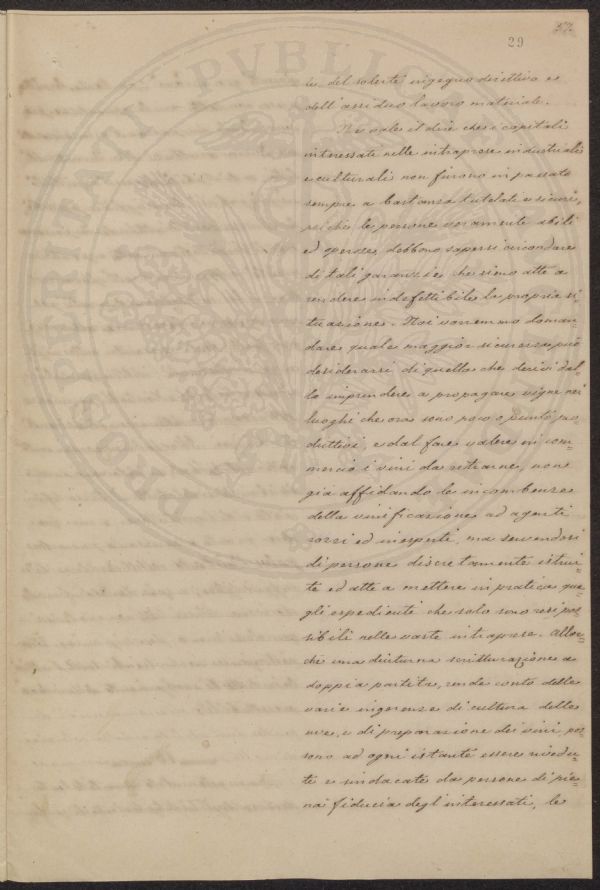 29
57.
PROSPERITATI PVBLICAE
te del solerte ingegno direttivo e
dell'assiduo lavoro materiale.
Ne vale il dire che i capitali
interessati nelle intraprese industriali
e culturali non furono in passato
sempre a bastanza tutelati e sicuri,
sicchè le persone veramente abili
ed operose debbono sapersi circondare
di tali garanzie che sieno atte a
rendere indefettibile la propria si=
tuazione. Noi vorremmo doman=
dare quale maggior sicurezza può
desiderarsi di quella che derivi dal=
lo imprendere a propagare vigne nei
luoghi che ora sono poco o punto pro=
duttivi, e dal fare valere in com=
mercio i vini da ritrarne, non
già affidando le incombenze
della vinificazione ad agenti
rozzi ed inesperti, ma servendosi
di persone discretamente istrui=
te ed atte a mettere in pratica que=
gli espedienti che solo sono resi pos=
sibili nelle vaste intraprese. Allor=
chè una diuturna scritturazione a
doppia partita, rende conto delle
varie ingerenze di cultura delle
uve, e di preparazione dei vini pos=
sono ad ogni istante essere rivedu=
te e sindacate da persone di pie=
na fiducia degl'interessati, le